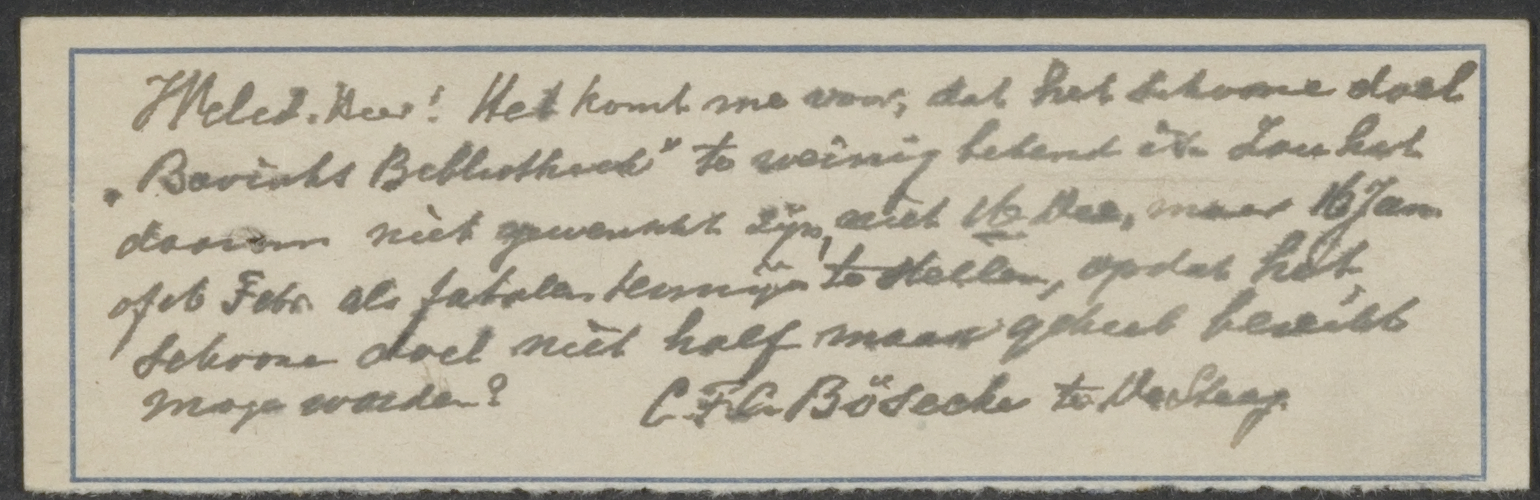 WelEd. Heer! Het komt me voor, dat het schoone doel
„Bavincks Bibliotheek" te weinig bekend is. Zou het
daarom niet gewenscht zijn, niet 16 Dec., maar 16 Jan.
of Febr. als fatalen termijn te stellen, opdat het
schoone doel niet half maar geheel bereikt
moge worden? C. F. C. Böseche te De Steeg.